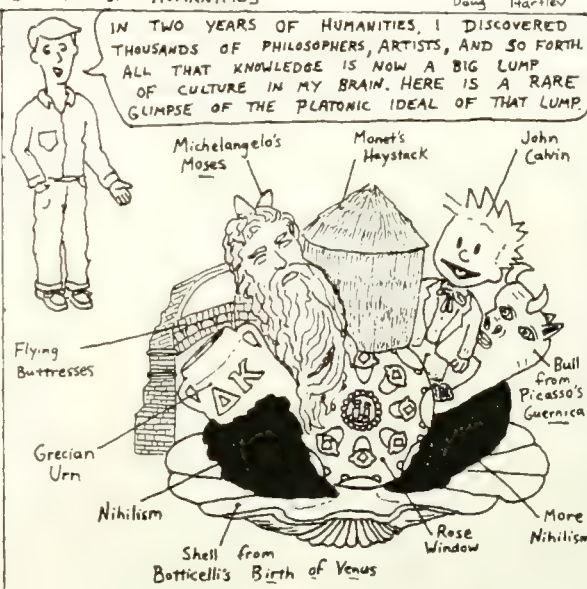 HUMANITIES
Doug Hartley
IN TWO YEARS OF HUMANITIES, I DISCOVERED
THOUSANDS OF PHILOSOPHERS, ARTISTS, AND SO FORTH.
ALL THAT KNOWLEDGE IS NOW A BIG LUMP
OF CULTURE IN MY BRAIN. HERE IS A RARE
GLIMPSE OF THE PLATONIC IDEAL OF THAT LUMP.
Michelangelo's
Moses
Monet's
Haystack
John
Calvin
Flying
Buttresses
ΔK
Bull
from
Picasso's
Guernica
Grecian
Urn
Nihilism
Shell from
Botticelli's Birth of Venus
Rose
Window
More
Nihilism